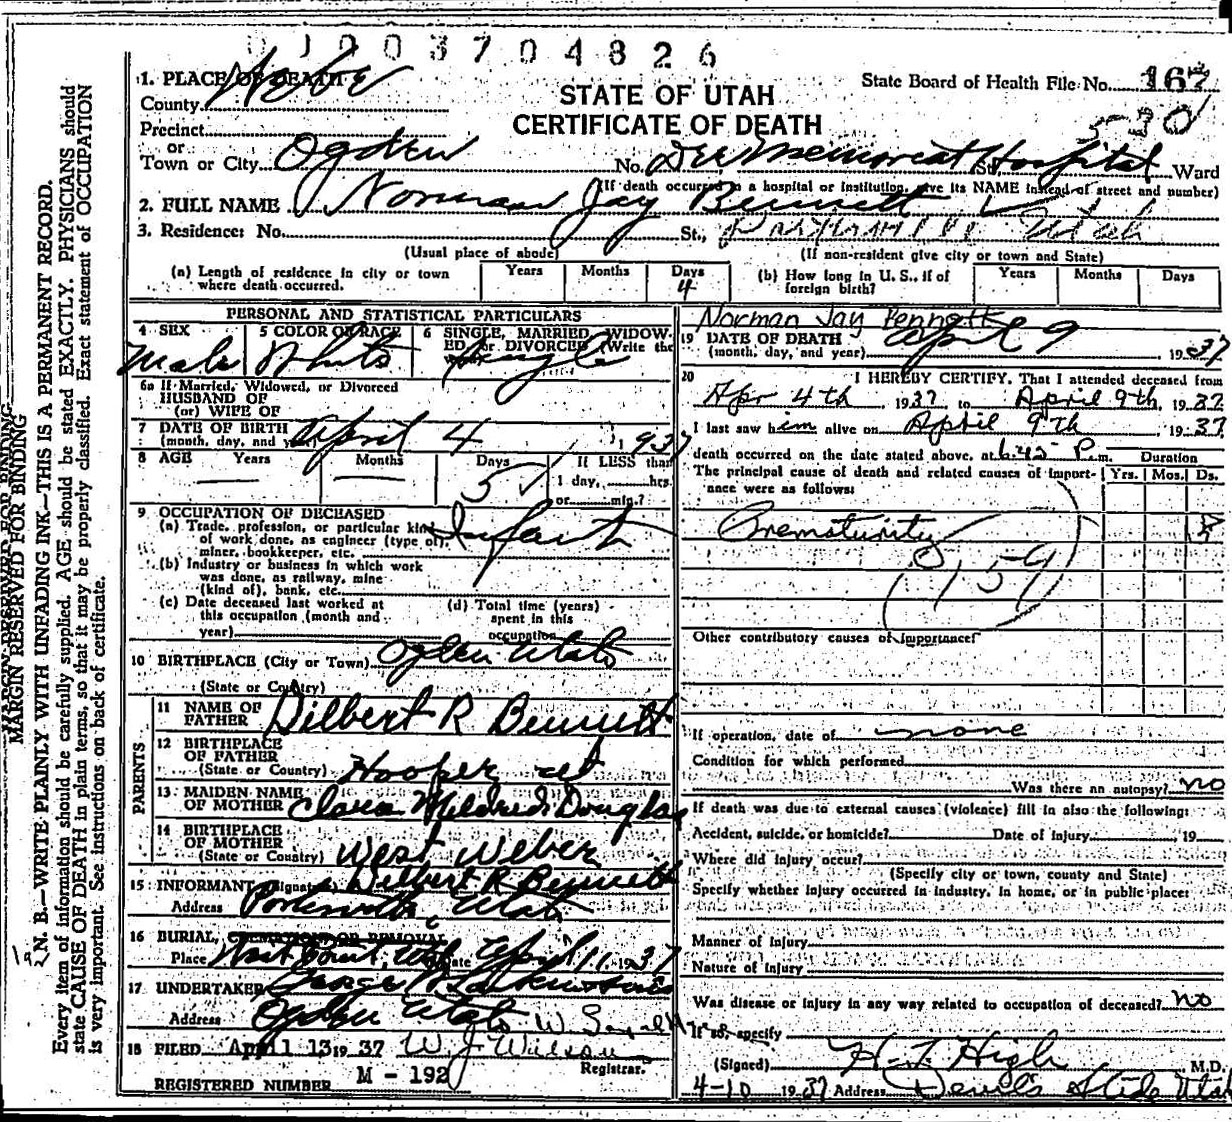 0 1 0 0 3 7 0 4 8 2 6
1. PLACE OF DEATH
State Board of Health File No. 167
County
STATE OF UTAH
530
Precinct
CERTIFICATE OF DEATH
or
Town or City Ogden No. Dee Memorial Hospital St. Ward
(If death occurred in a hospital or institution, give its NAME instead of street and number)
2. FULL NAME Norman Jay Bennett
3. Residence: No. St., Utah
(Usual place of abode) (If non-resident give city or town and State)
(a) Length of residence in city or town where death occurred. Years Months Days 4
(b) How long in U. S., if of foreign birth? Years Months Days
PERSONAL AND STATISTICAL PARTICULARS
4 SEX Male
5 COLOR OR RACE White
6 SINGLE, MARRIED, WIDOWED, or DIVORCED (Write the Single
6a If Married, Widowed, or Divorced
HUSBAND OF
(or) WIFE OF
7 DATE OF BIRTH
(month, day, and year) April 4 1937
8 AGE Years Months Days 5 If LESS than
1 day, hrs.
or min.?
9 OCCUPATION OF DECEASED
(a) Trade, profession, or particular kind Infant
of work done, as engineer (type of),
miner, bookkeeper, etc.
(b) Industry or business in which work
was done, as railway, mine
(kind of), bank, etc.
(c) Date deceased last worked at
this occupation (month and
year)
(d) Total time (years)
spent in this
occupation
10 BIRTHPLACE (City or Town) Ogden Utah
(State or Country)
PARENTS
11 NAME OF
FATHER Dilbert R Bennett
12 BIRTHPLACE
OF FATHER
(State or Country) Hooper Ut
13 MAIDEN NAME
OF MOTHER Clara Mildred Douglas
14 BIRTHPLACE
OF MOTHER
(State or Country) West Weber
15 INFORMANT (Signature) Dilbert R Bennett
Address Utah
16 BURIAL, CREMATION OR REMOVAL
Place Utah Date April 11, 1937
17 UNDERTAKER George
Address Ogden Utah
18 FILED April 13 1937 W. J. Wilson
Registrar.
REGISTERED NUMBER M - 192
Norman Jay Bennett
19 DATE OF DEATH
(month, day, and year) April 9 1937
20 I HEREBY CERTIFY, That I attended deceased from
Apr 4th, 1937 to April 9th, 1937.
I last saw him alive on April 9th 1937
death occurred on the date stated above, at 6:45 P.m. Duration
The principal cause of death and related causes of importance were as follows: Yrs. Mos. Ds.
Prematurity
159
Other contributory causes of importance:
If operation, date of none
Condition for which performed
Was there an autopsy? no
If death was due to external causes (violence) fill in also the following:
Accident, suicide, or homicide? Date of injury 19
Where did injury occur?
(Specify city or town, county and State)
Specify whether injury occurred in industry, in home, or in public place:
Manner of Injury
Nature of Injury
Was disease or injury in any way related to occupation of deceased? no
If so, specify
(Signed) H. T. High M.D.
4-10 1937 Address Devils Slide Utah
MARGIN RESERVED FOR BINDING
N. B.—WRITE PLAINLY WITH UNFADING INK—THIS IS A PERMANENT RECORD.
Every item of information should be carefully supplied. AGE should be stated EXACTLY. PHYSICIANS should
state CAUSE OF DEATH in plain terms, so that it may be properly classified. Exact statement of OCCUPATION
is very important. See instructions on back of certificate.